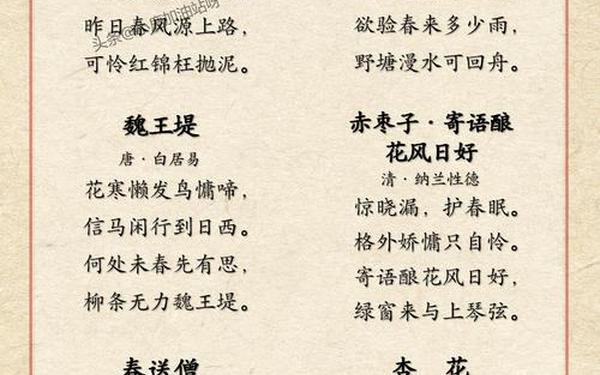 昨日春风源上路，
可怜红锦枉抛泥。
魏王堤
唐·白居易
花寒懒发鸟慵啼，
信马闲行到日西。
何处未春先有思，
柳条无力魏王堤。
春送僧
欲验春来多少雨，
野塘漫水可回舟。
赤枣子·寄语酿
花风日好
清·纳兰性德
惊晓漏，护春眠。
格外娇慵只自怜。
寄语酿花风日好，
绿窗来与上琴弦。
杏 花